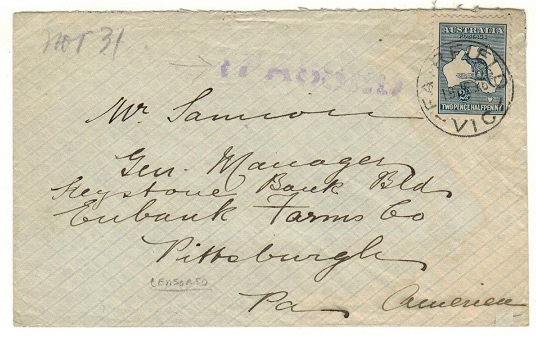 AUSTRALIA
POSTAGE
2½
TWOPENCE HALFPENNY
FAIRFIELD
VIC
Mr Samson
Gen. Manager
Keystone Bank Bld
Eubank Farms Co
Pittsburgh
Pa America
CENSORED